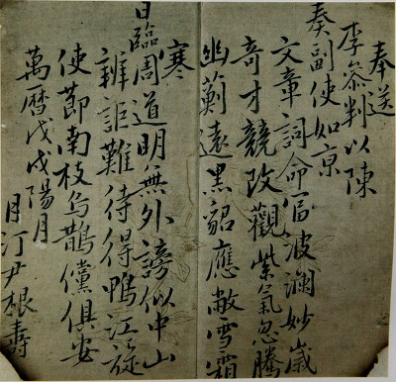 奉送
李叅判以陳
奏副使如京
文章詞命富波瀾妙歲
奇才競改觀紫氣忽騰
幽薊遠黑貂應敝雪霜
寒
日臨周道明無外謗似中山
辨詎難待得鴨江旋
使節南枝烏鵲儻俱安
萬曆戊戌陽月
月汀尹根壽